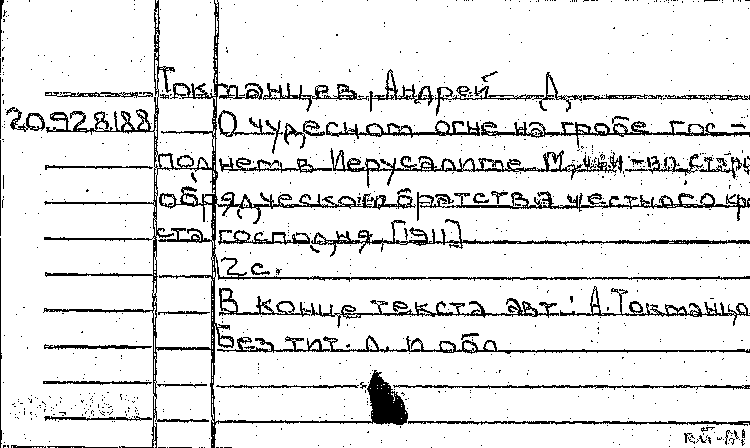 Токманцев, Андрей Д.
20.928188
О чудесном огне на гробе гос-
поднем в Иерусалиме М., стар
обрядческой братства честного кре
ста господня, [1911]
2 с.
В конце текста авт.: А. Токманцо
Без тит. л. и обл.
ВЙ-84